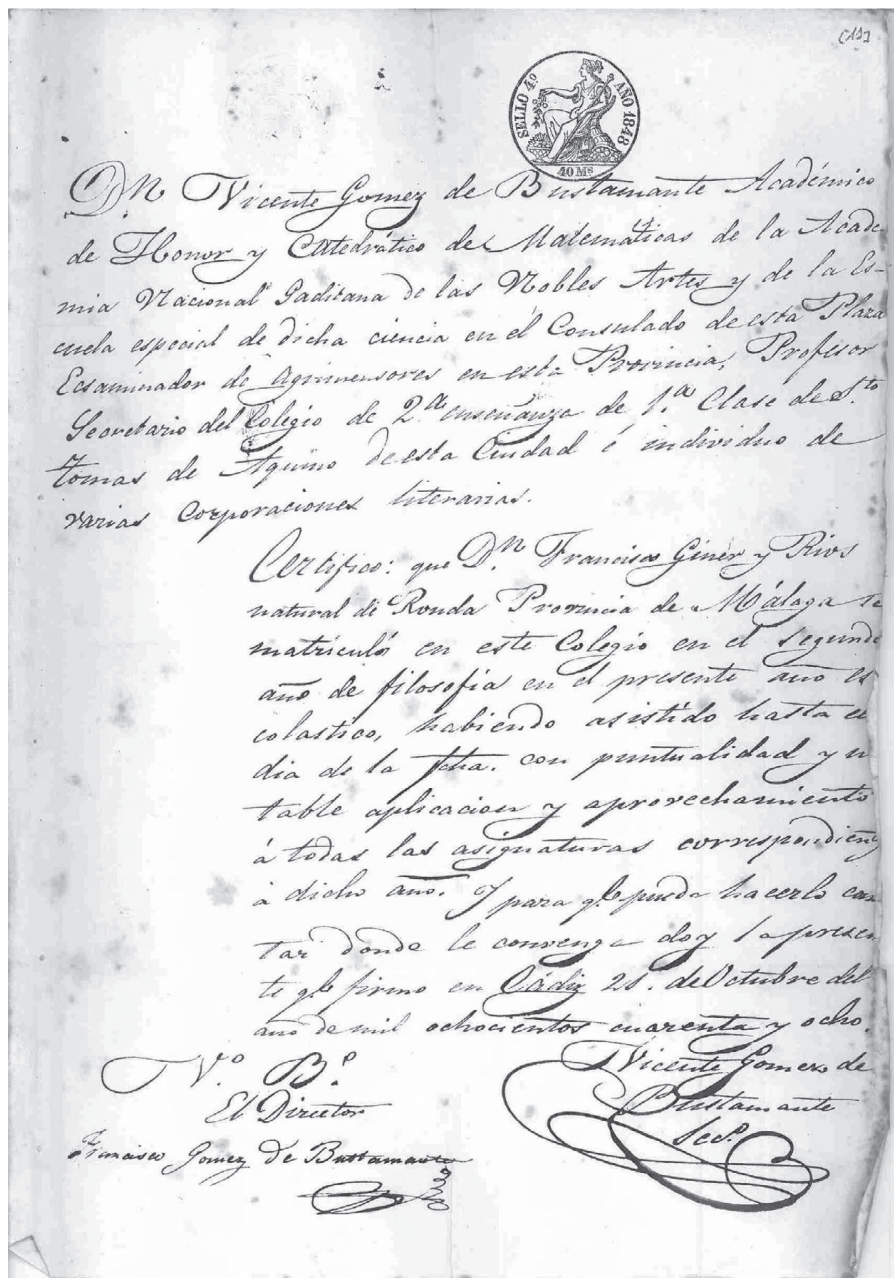 [11]
SELLO 4º AÑO 1848
40 Ms
Dn Vicente Gomez de Bustamante Académico
de Honor y Catedrático de Matemáticas de la Acade-
mia Nacional Gaditana de las Nobles Artes y de la Es-
cuela especial de dicha ciencia en el Consulado de esta Plaza
Ecsaminador de Agrimensores en esta Provincia, Profesor
Secretario del Colegio de 2da enseñanza de 1.a Clase de Sto
tomas de Aquino de esta Ciudad é individuo de
varias Corporaciones literarias.
Certifico: que Dn Francisco Giner y Rios
natural de Ronda Provincia de Málaga se
matriculó en este Colegio en el segundo
año de filosofia en el presente año es
colastico, habiendo asistido hasta el
dia de la fcha. con puntualidad y no
table aplicacion y aprovechamiento
á todas las asignaturas correspondientes
á dicho año. Y para qe pueda hacerlo cons
tar donde le convenga doy la presen
te qe firmo en Cádiz 21. de Octubre del
año de mil ochocientos cuarenta y ocho.
Vº. Bº.
El Director
Francisco Gomez de Bustamante
Vicente Gomez de
Bustamante
Secº.